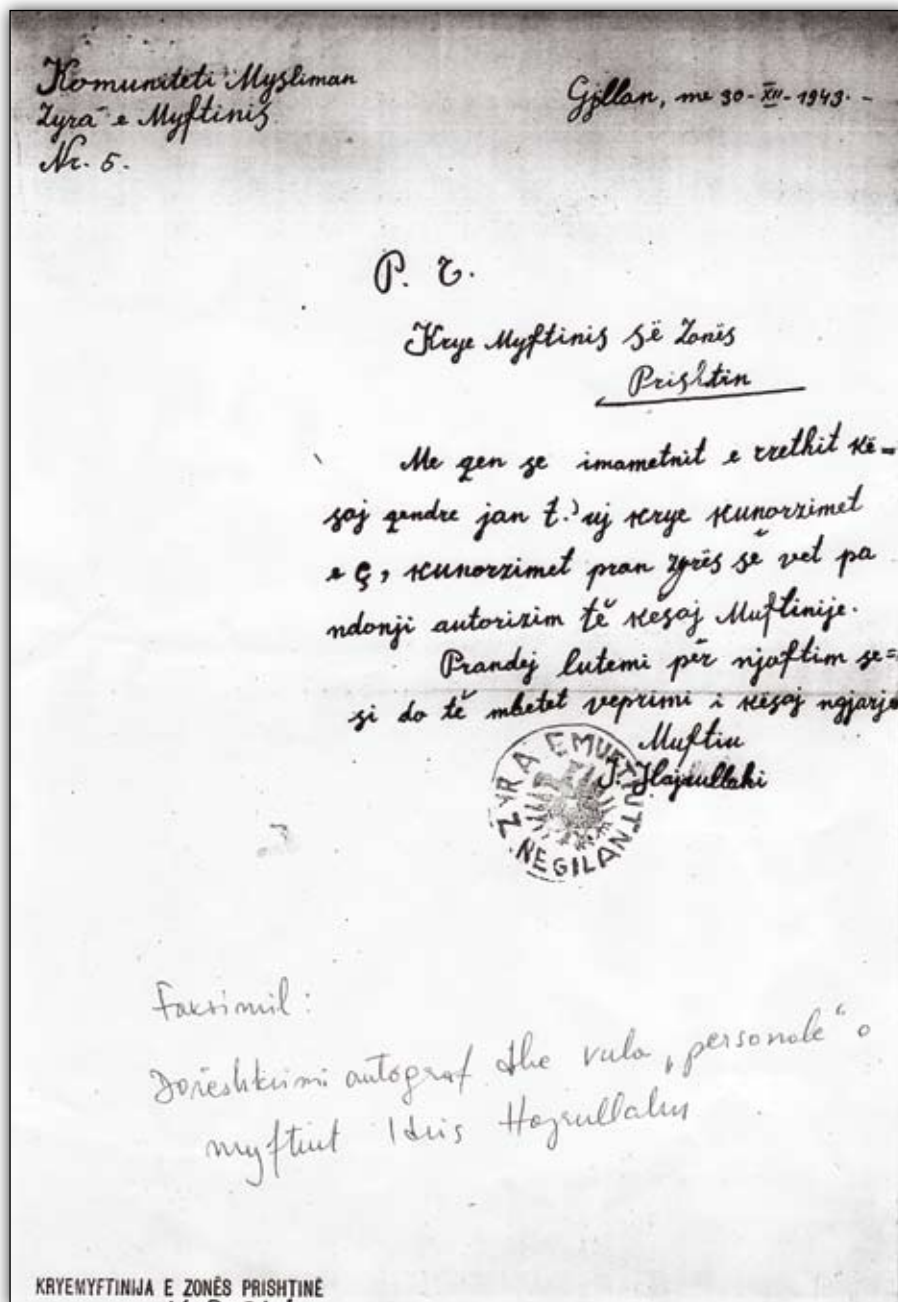 Komuniteti Mysliman
Zyra e Myftinis
Nr. 5.
Gjillan, me 30-XII-1943.-
P. T.
Krye Myftinis së Zonës
Prishtin
Me qen se imametnit e rrethit kë=
saj qendre jan t. uj krye kunorzimet
e Ç, kunorzimet pran zyrës së vet pa
ndonji autorizim të kesaj Muftinije.
Prandej lutemi për njoftim se=
si do të mbetet veprimi i kësaj ngjarje
Muftiu
I. Hajrullahi
ZYRA E MUFTIUT
NE GILAN
Faksimil:
Dorëshkrimi autograf dhe vula „personale“ e
myftiut Idris Hajrullahu
KRYEMYFTINIJA E ZONËS PRISHTINË